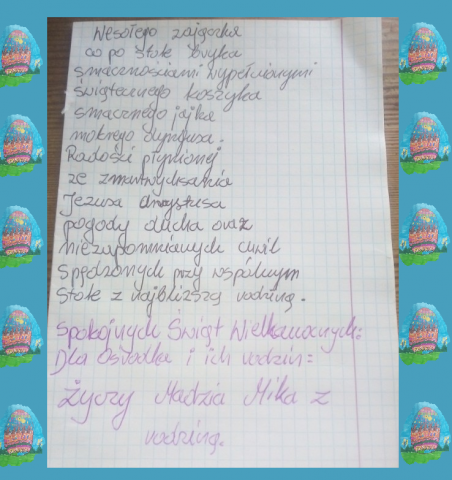 Wesołego zajączka
co po stole bryka
smacznościami wypełnionymi
świątecznego koszyka
smacznego jajka
mokrego dyngusa.
Radości płynącej
ze zmartwychwstania
Jezusa Chrystusa
pogody ducha oraz
niezapomnianych chwil
spędzonych przy wspólnym
stole z najbliższą rodziną.
Spokojnych Świąt Wielkanocnych:
Dla Ośrodka i ich rodzin:
Życzy Madzia Mika z
rodziną.